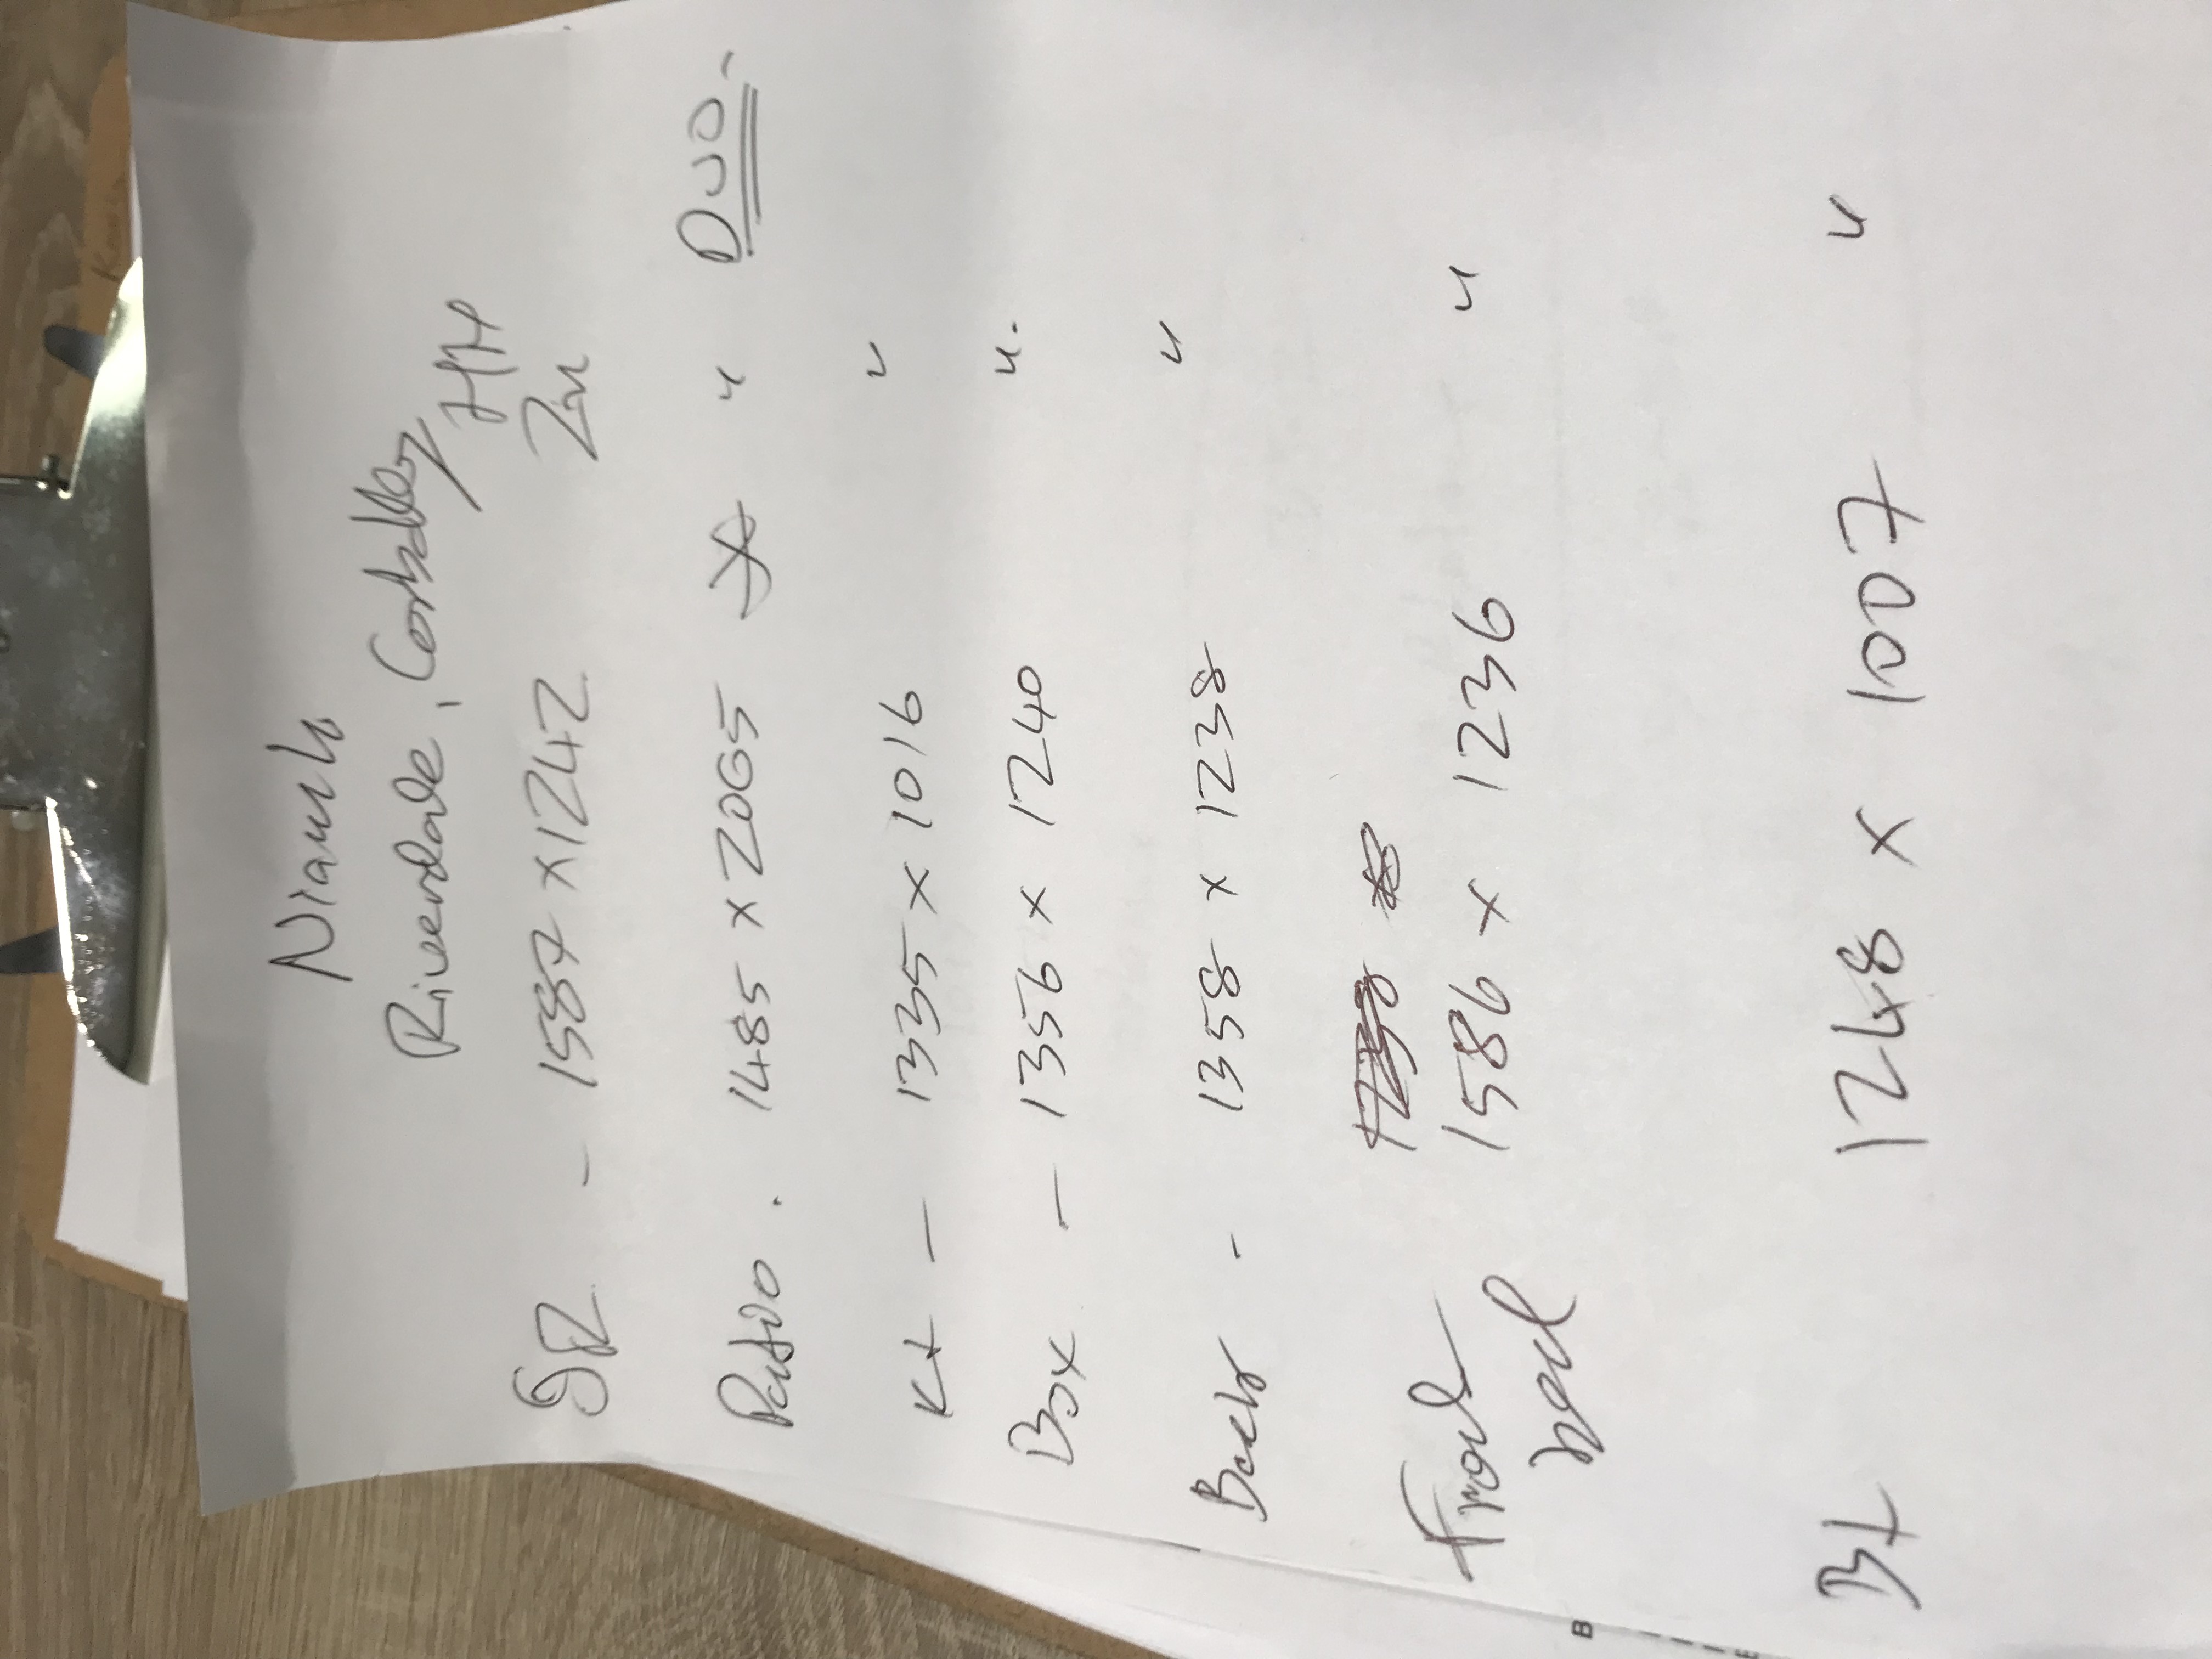 Niamh
Riverdale, Corbally
SR - 1587 x 1242
Patio . 1485 x 2065 " DUO -
Kt - 1335 x 1016 "
Box - 1356 x 1240 ".
Back - 1358 x 1238 "
Front bed 1586 x 1236 "
Bt 1248 x 1007 "
B